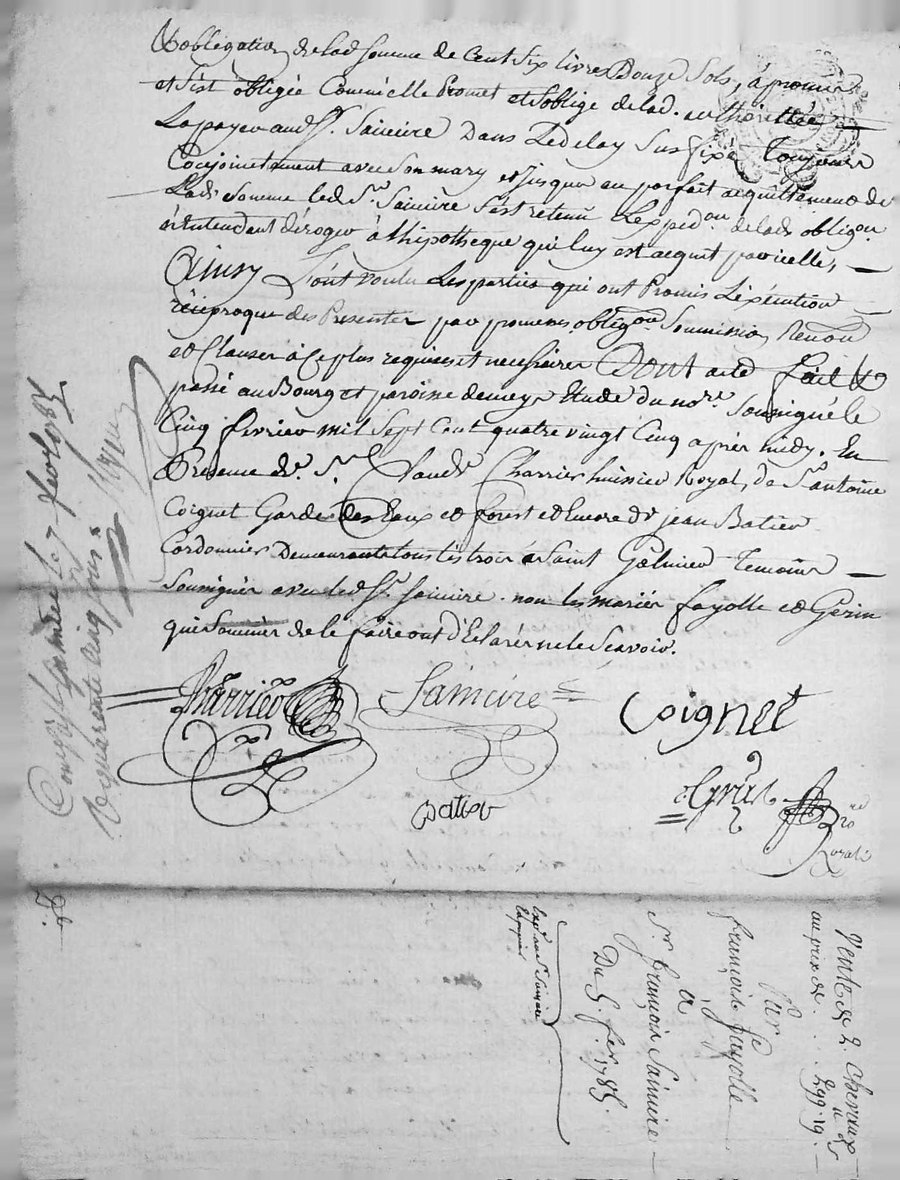 L'obligation de lad. somme de Cent Six livres Douze Sols, a promis
et s'est obligée Comme elle Promet et s'oblige de lad. authorittée
La payer aud. Sr. Saimire Dans Le delay Sus fixé Toujours
Conjointement avec Son mary et jusqua au parfait acquittement de
Lad. Somme led. Sr. Saimire s'est retenu L'expedon. de lad. obligon.
n'entendant déroger à l'hipotheque qui luy est acquit par icelle,
Ainsy L'ont voulu Les parties qui ont Promis L'exécution
réciproque des Presentes par promesses obligon Soumission Renon
et Clauses à Ce plus requises et necessaires Dont acte fait &
passé au Bourg et paroisse de Etude du nore. Soussigné le
Cinq fevrier mil Sept Cent quatre vingt Cinq après midy. En
Presence de Sr. Claude Charrier huissier Royal, de Sr. antoine
Coignet Garde des Eaux et forest et Encore de jean Batier
Cordonnier Demeurants tous les trois à Saint Galmier Temoins
Soussignés avec led. Sr. Saimire. non les mariés fayolle et Gerin
qui Sommés de le faire ont déclaré ne le Scavoir.
Charrier
Saimire
Coignet
Batier
Nre
Royal
Controlé le 7 fevr 1785
Reçu quarante cinq sols
Vente de 2. Chevaux
au prix de . . 299.19.
Par
françois fayolle
à
Sr. françois Saimire
Du 5. fer. 1785.
Expé. au Sr. Saimire
En papier